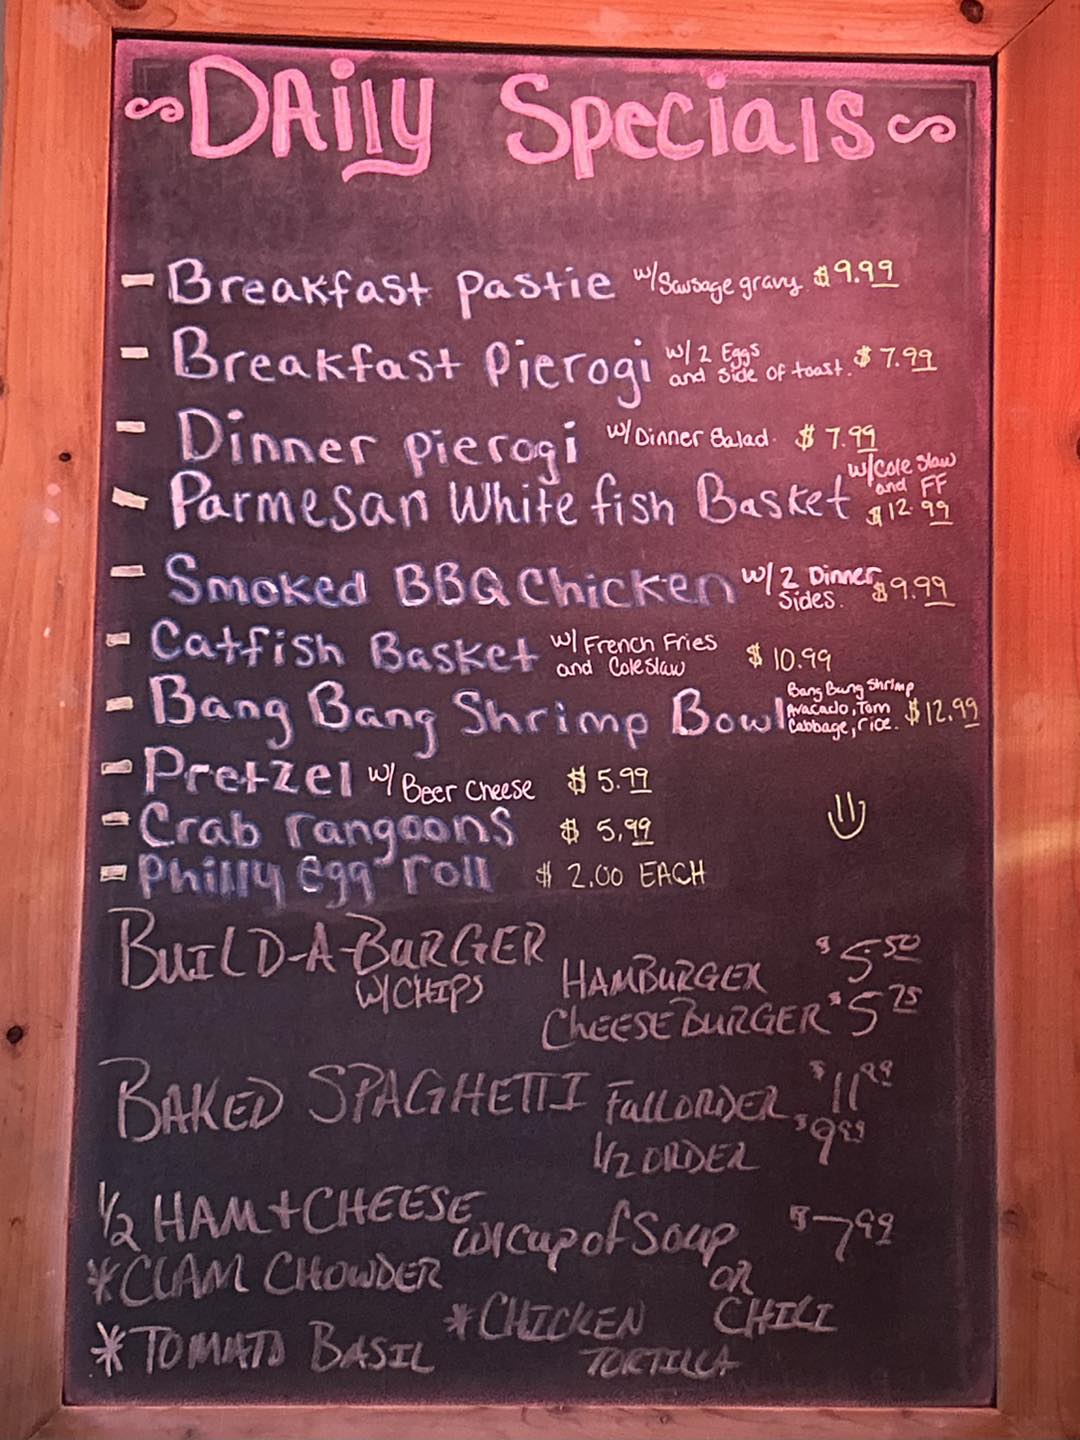 DAily Specials
- Breakfast Pastie w/Sausage gravy $9.99
- Breakfast Pierogi w/ 2 Eggs and Side of toast. $7.99
- Dinner Pierogi w/ Dinner Salad. $7.99
- Parmesan White fish Basket w/Cole Slaw and FF $12.99
- Smoked BBQ Chicken w/ 2 Dinner Sides. $9.99
- Catfish Basket w/ French Fries and Coleslaw $10.99
- Bang Bang Shrimp Bowl Bang Bung Shrimp Avacado, Tom Cabbage, rice. $12.99
- Pretzel w/ Beer Cheese $5.99
- Crab rangoons $5,99
- Philly egg roll $2.00 EACH
BUILD-A-BURGER W/CHIPS
HAMBURGER $5.50
CHEESEBURGER $5.75
BAKED SPAGHETTI Full ORDER $11.99
1/2 ORDER $9.99
1/2 HAM + CHEESE w/cup of Soup $7.99
OR CHILI
*CLAM CHOWDER
*CHICKEN TORTILLA
*TOMATO BASIL